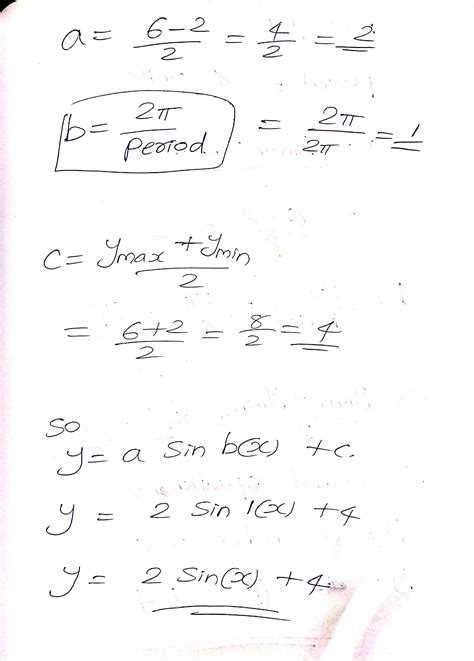 a = 6-2/2 = 4/2 = 2
b = 2π/Period = 2π/2π = 1
c = ymax + ymin/2
= 6+2/2 = 8/2 = 4
So
y = a sin b(x) + c.
y = 2 sin 1(x) + 4
y = 2 sin(x) + 4